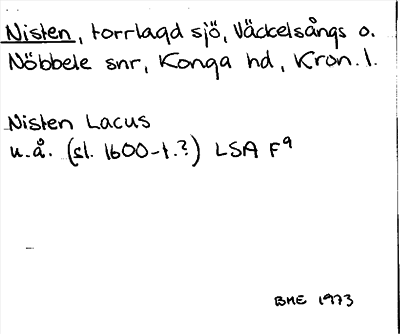 Nisten, torrlagd sjö, Väckelsångs o.
Nöbbele snr, Konga hd, Kron. l.
Nisten Lacus
u.å. (sl. 1600-t.?) LSA F9
BHE 1973